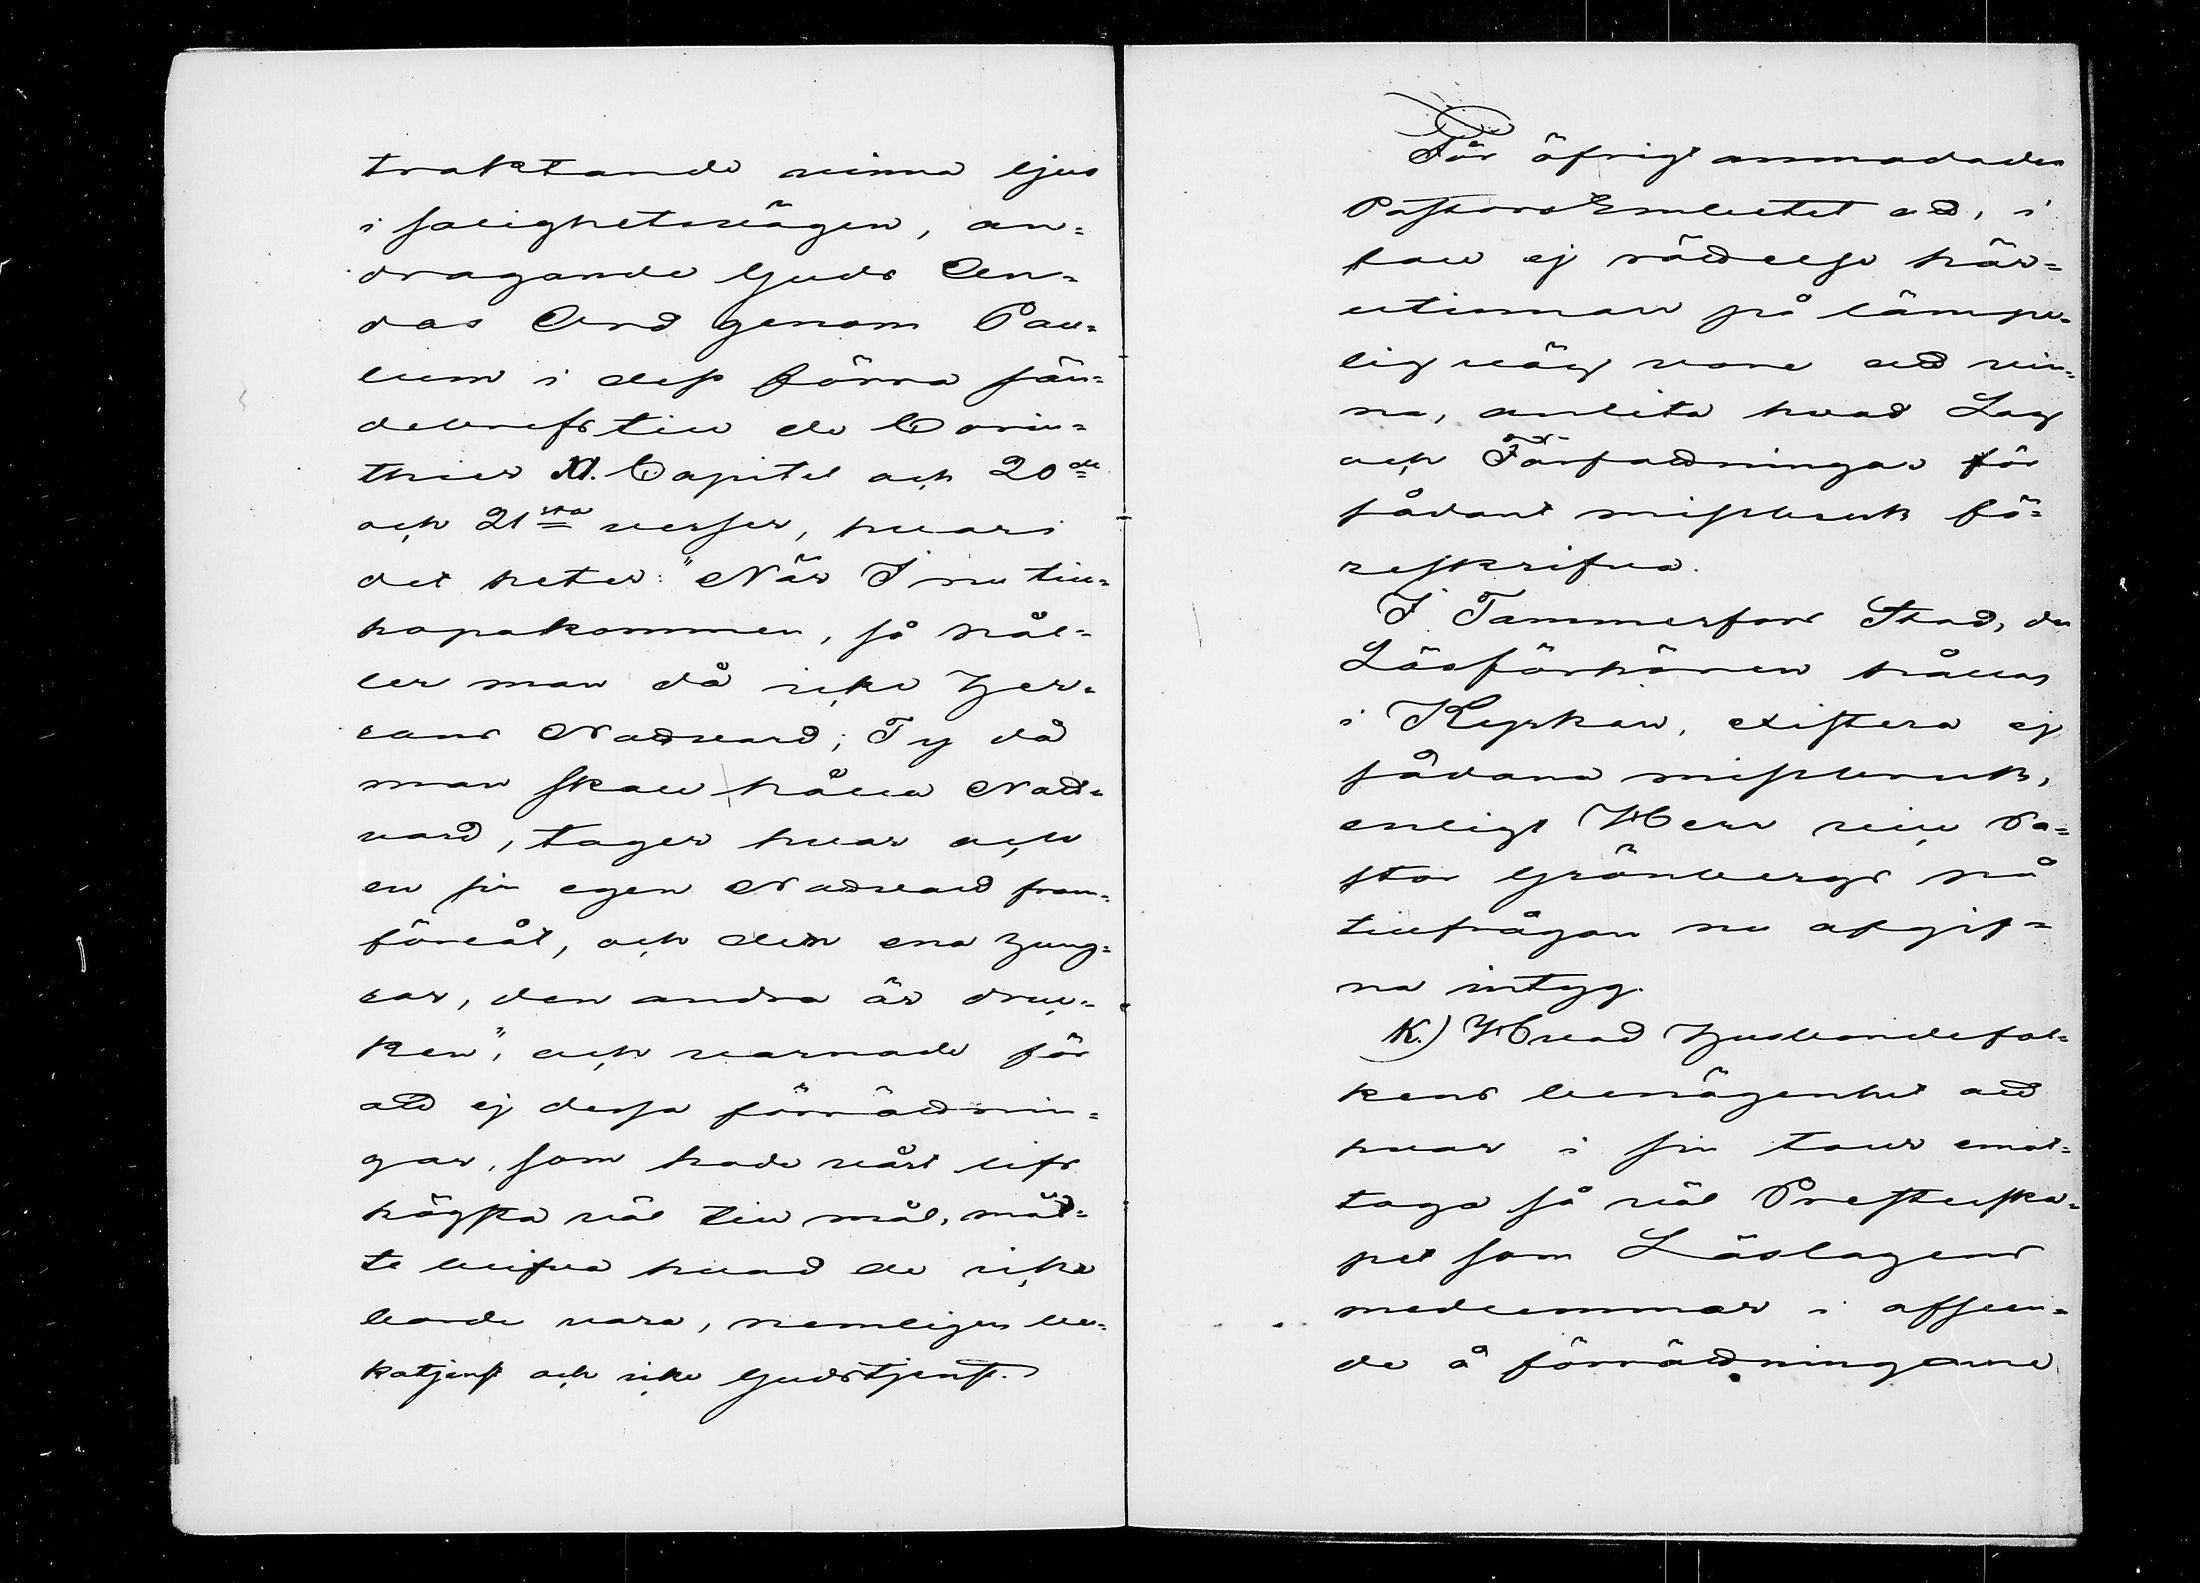 traktande vinna ljus
i salighetsvägen, an=
dragande Guds An=
das Ord genom Pau=
lum i dess förra sän=
debref till de Corin=
thier XI. Capitel och 20de
och 21sta verser, hvari
det heter: "När I nu till=
hopakommen, så hål=
ler man då icke Her=
rans Nattvard; Ty då
man skall hålla Natt=
vard, tager hvar och
en sin egen Nattvard fram=
föreåt, och den ena hung=
rar, den andra är druc=
ken", och varnade för
att ej dessa förrättnin=
gar, som hade vårt lifs
högsta väl till mål, måt=
te blifva hvad de icke
borde vara, nemligen bu=
ktjenst och icke Gudstjenst.
För öfrigt anmodades
PastorsEmbetet att, i
fall ej rättelse här=
utinnan på lämpe=
lig väg vore att vin=
na, anlita hvad Lag
och Författningar för
sådant missbruk fö=
reskrifva.
I Tammerfors Stad, der
Läsförhören hållas
i Kyrkan, existera ej
sådana missbruk,
enligt Herr vice Pa=
stor Grönbergs på
tillfrågan nu afgif=
na intyg.
K.) Hvad Husbondefol=
kens benägenhet att
hvar i sin tour emot=
taga så väl Presterska=
pet som Läslagens
medlemmar i afseen=
de å förrättningarne